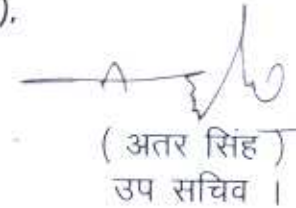 ).
( अतर सिंह )
उप सचिव ।